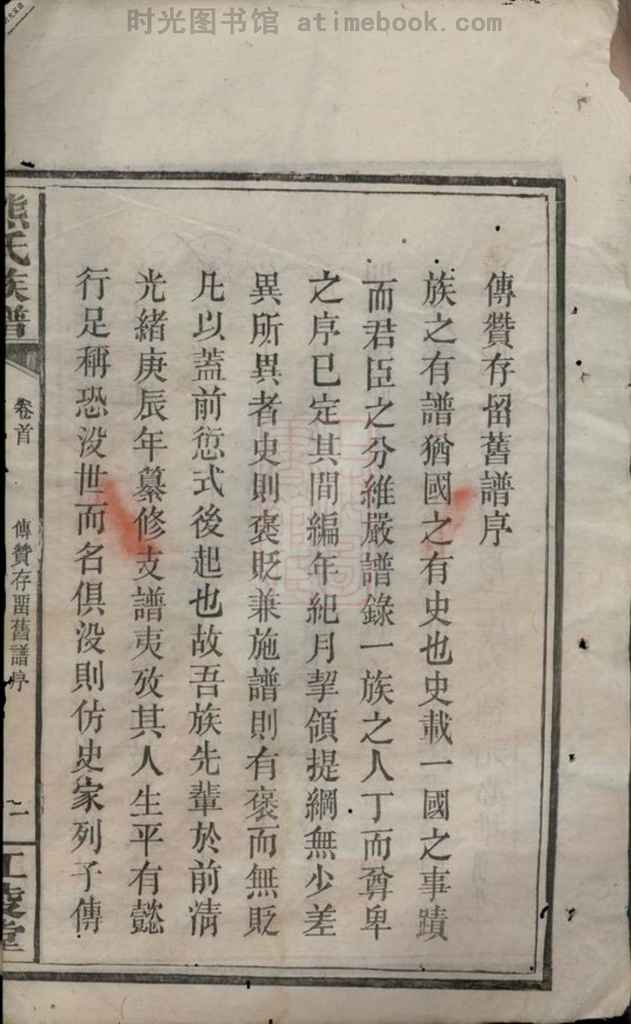 时光图书馆 atimebook.com
傳贊存留舊譜序
族之有譜猶國之有史也史載一國之事蹟
而君臣之分維嚴譜錄一族之人丁而尊卑
之序已定其間編年紀月挈領提綱無少差
異所異者史則褒貶兼施譜則有褒而無貶
凡以蓋前愆式後起也故吾族先輩於前清
光緒庚辰年纂修支譜夷攷其人生平有懿
行足稱恐没世而名俱没則仿史家列子傳
熊氏族譜
卷首
傳贊存留舊譜序
江陵堂